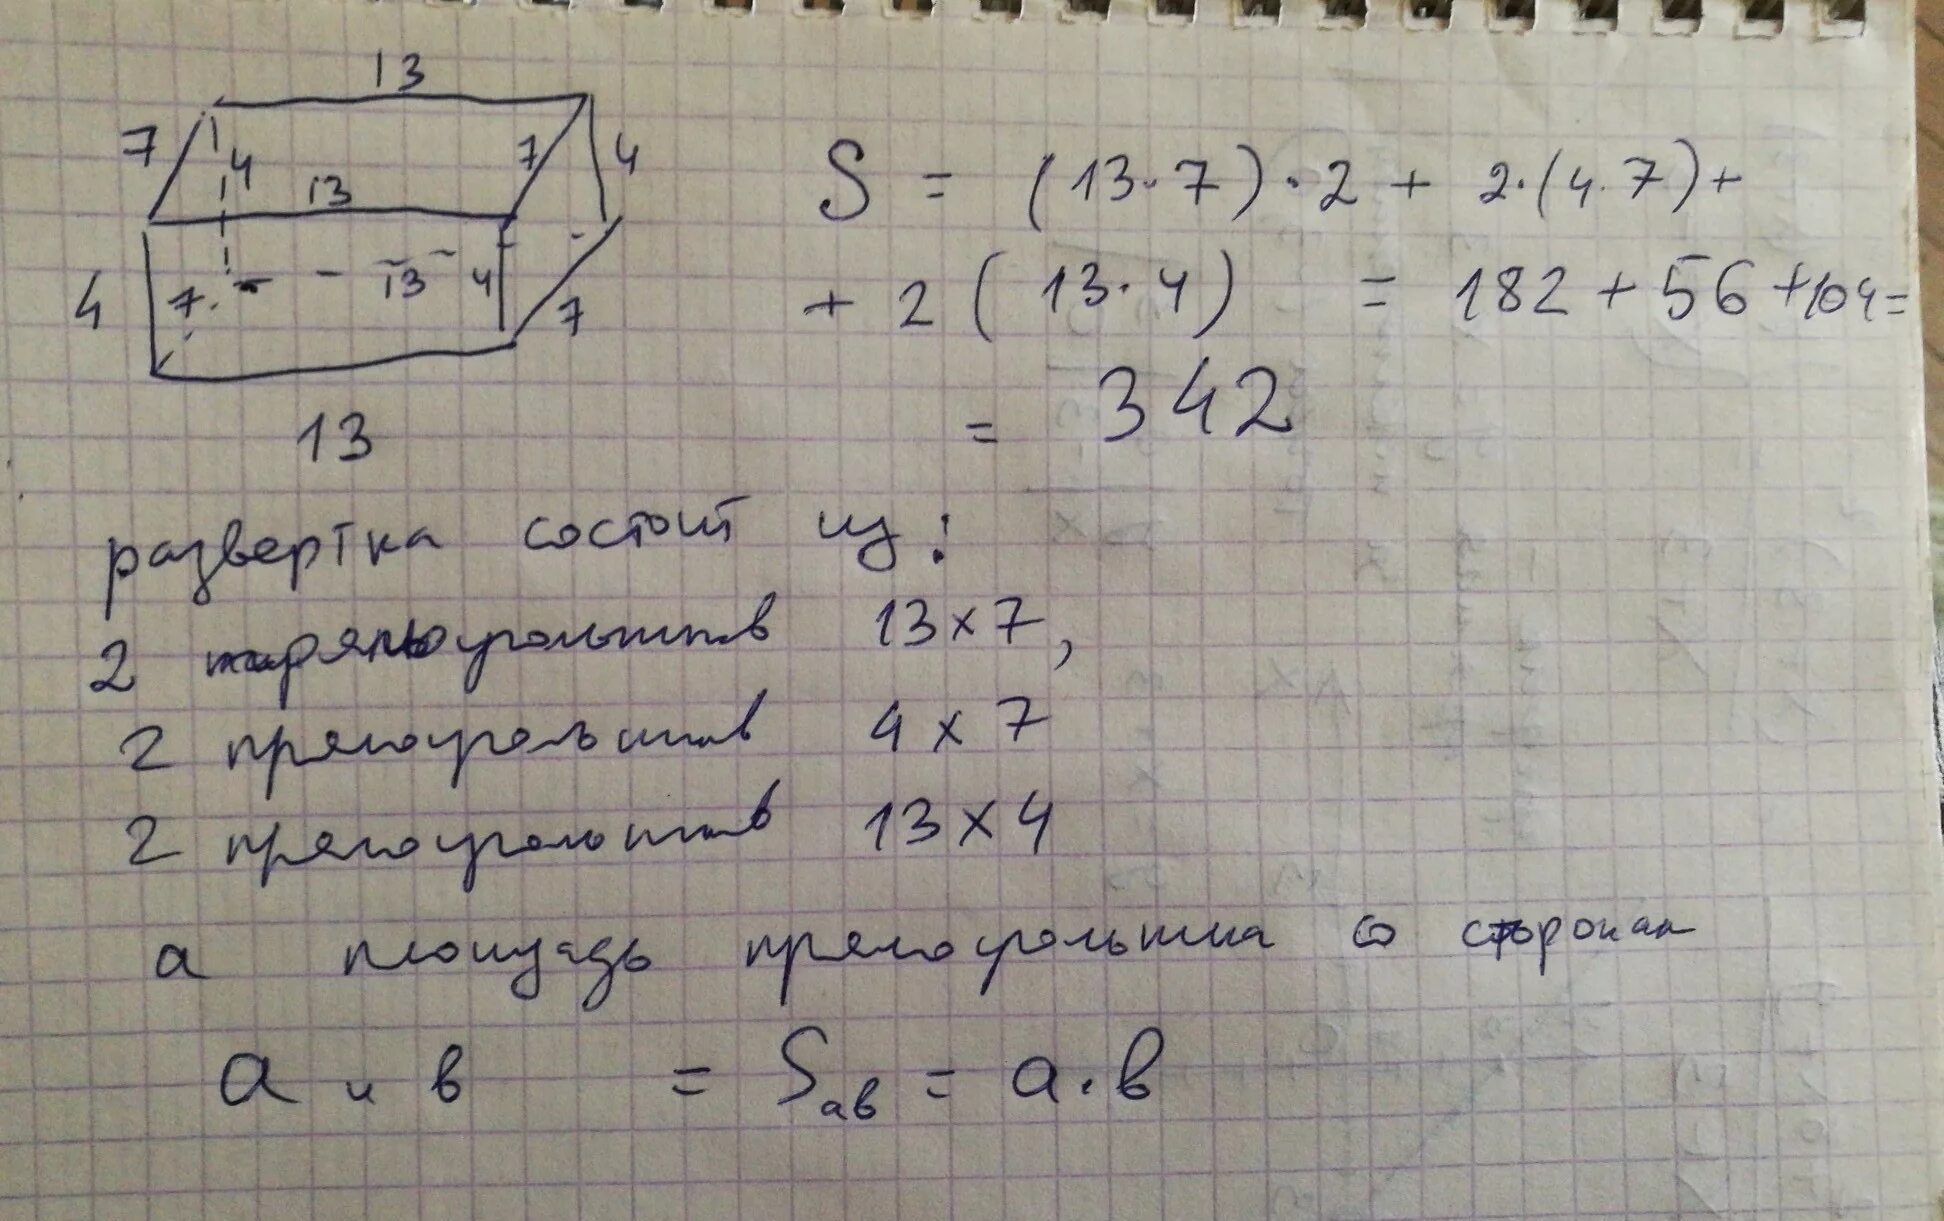 13
7 4 7 4
13
4 7 13 4 7
13
S = (13·7)·2 + 2·(4·7)+
+ 2 (13·4) = 182 + 56 + 104 =
= 342
развертка состоит из:
2 прямоугольников 13 x 7,
2 прямоугольников 4 x 7
2 прямоугольников 13 x 4
а площадь прямоугольника со сторонам
a и в = Sав = a·в